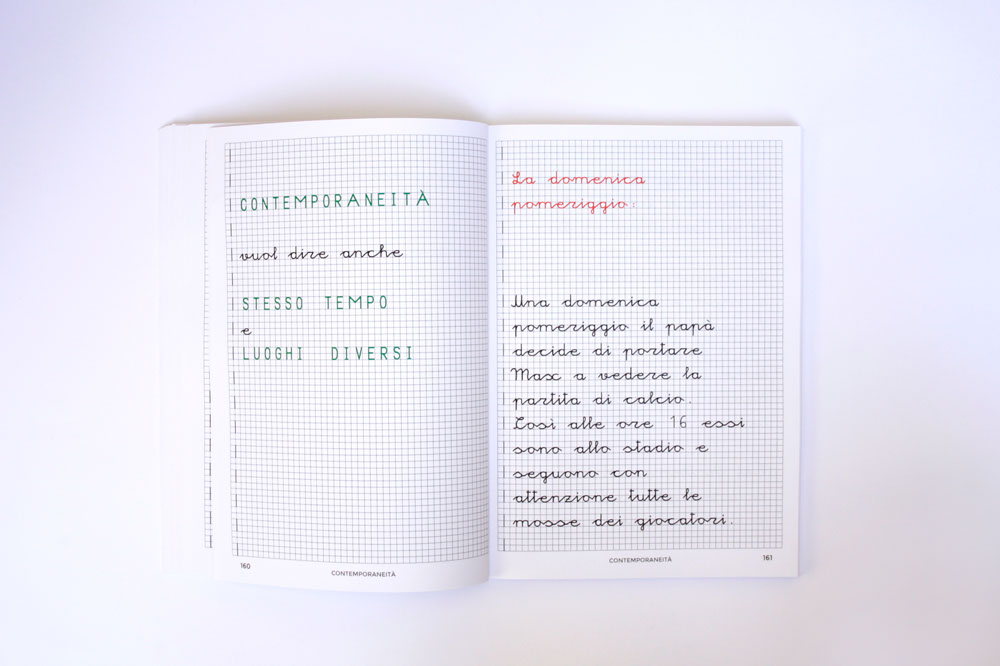 CONTEMPORANEITÀ
vuol dire anche
STESSO TEMPO
e
LUOGHI DIVERSI
160
CONTEMPORANEITÀ
La domenica
pomeriggio:
Una domenica
pomeriggio il papà
decide di portare
Max a vedere la
partita di calcio.
Così alle ore 16 essi
sono allo stadio e
seguono con
attenzione tutte le
mosse dei giocatori.
CONTEMPORANEITÀ
161